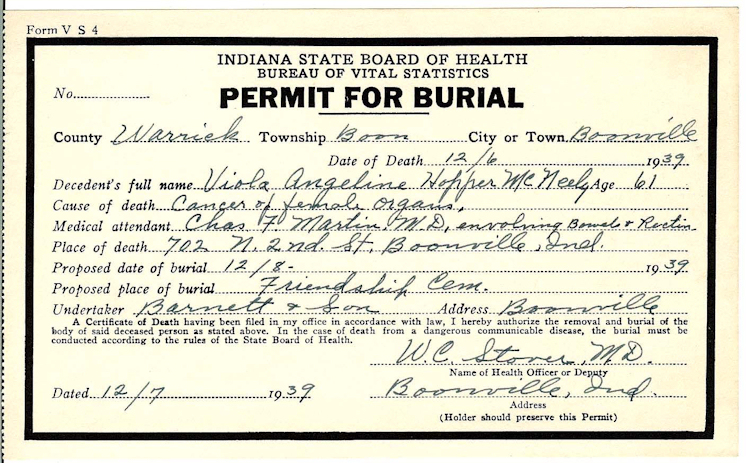 Form V S 4
INDIANA STATE BOARD OF HEALTH
BUREAU OF VITAL STATISTICS
No.
PERMIT FOR BURIAL
County Warrick Township Boon City or Town Boonville
Date of Death 12/6 1939
Decedent's full name Viola Angeline Hopper McNeely Age 61
Cause of death Cancer of female organs,
Medical attendant Chas F Martin, M.D, envolving Bowel & Rectin
Place of death 702 N. 2nd. St, Boonville, Ind.
Proposed date of burial 12/8- 1939
Proposed place of burial Friendship Cem.
Undertaker Barnett & Son Address Boonville
A Certificate of Death having been filed in my office in accordance with law, I hereby authorize the removal and burial of the
body of said deceased person as stated above. In the case of death from a dangerous communicable disease, the burial must be
conducted according to the rules of the State Board of Health.
W.C. Stover, M.D.
Name of Health Officer or Deputy
Dated 12/7 1939 Boonville, Ind.
Address
(Holder should preserve this Permit)